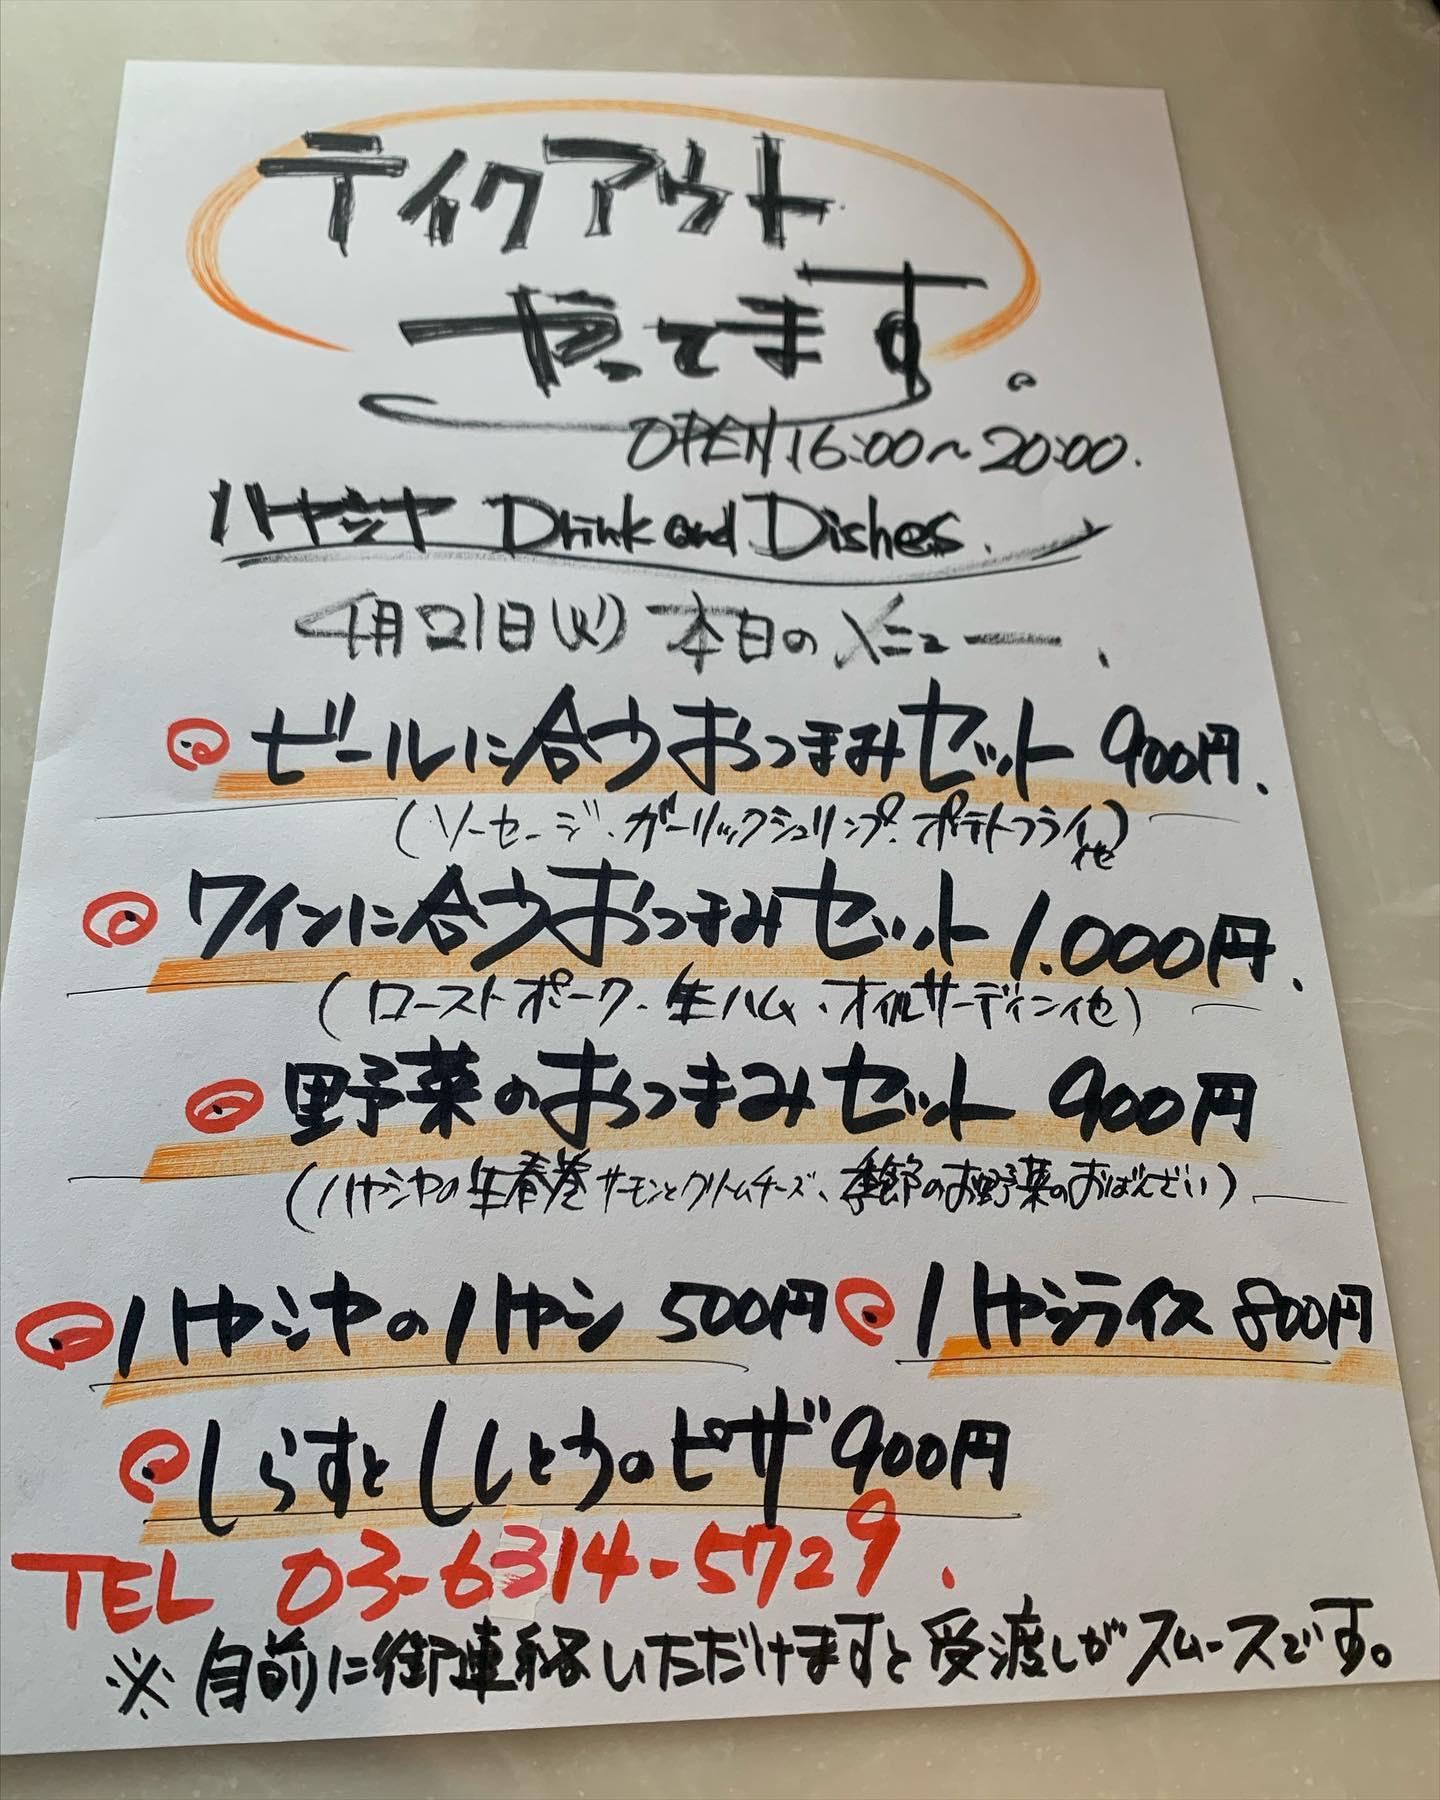 テイクアウト
やってます。
OPEN 16:00〜20:00.
ハヤシヤ Drink and Dishes.
4月21日(火) 本日のメニュー.
ビールに合うおつまみセット 900円.
(ソーセージ、ガーリックシュリンプ、ポテトフライ他)
ワインに合うおつまみセット 1.000円.
(ローストポーク、生ハム、オイルサーディン他)
野菜のおつまみセット 900円
(ハヤシヤの生春巻 サーモンとクリームチーズ、季節のお野菜のおばんざい)
ハヤシヤのハヤシ 500円 ハヤシライス 800円
しらすとししとうのピザ 900円
TEL 03-6314-5729.
※自前に御連絡いただけますと受渡しがスムースです。